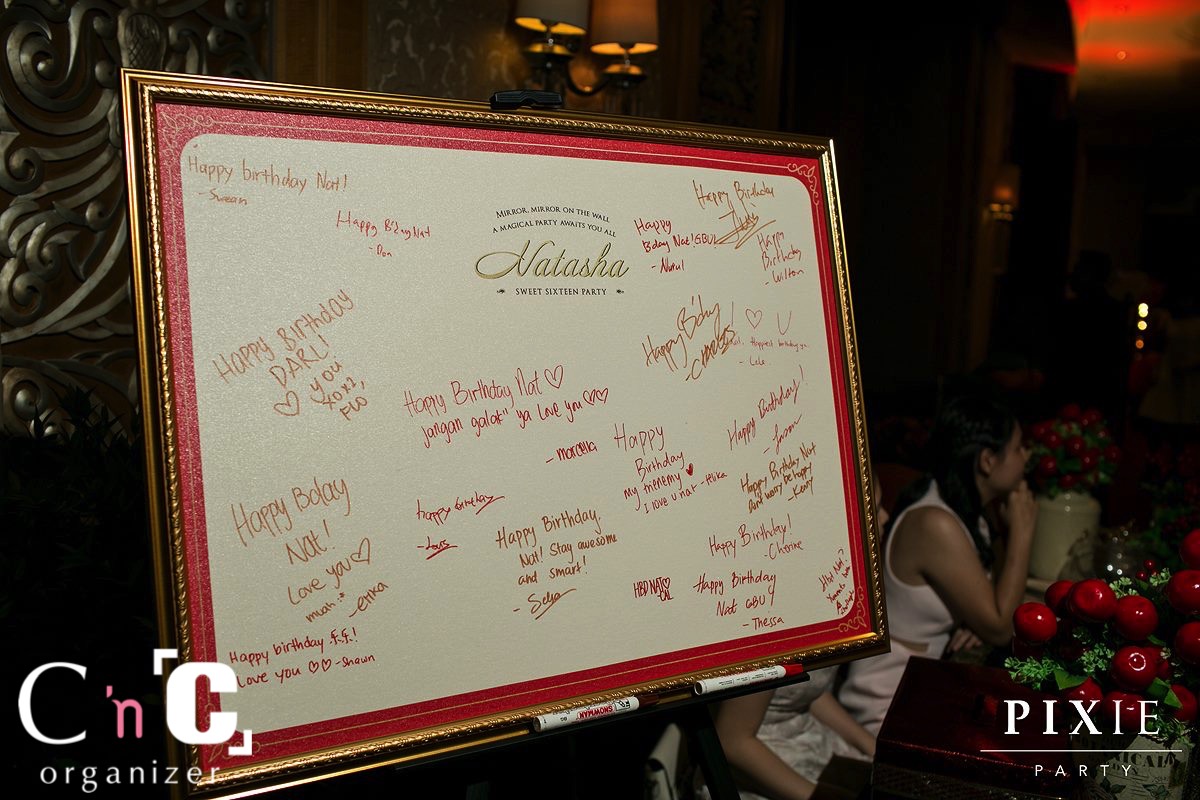 MIRROR, MIRROR ON THE WALL
A MAGICAL PARTY AWAITS YOU ALL
Natasha
SWEET SIXTEEN PARTY
Happy birthday Nat!
Happy B'day Nat
- Don
Happy Birthday
DARL!
♡ you
XOXO,
FLO
Happy Birthday Nat ♡
jangan galak" ya love you ♡♡
- marcella
Happy Bday
Nat!
Love you ♡
muah :*
- erika
Happy birthday 乐乐!
Love you ♡♡ - Shawn
happy birthday
- Louis
Happy Birthday,
Nat! Stay awesome
and smart!
Happy
B'day Nat! GBU!
- Nurul
Happy Birthday
Happy
Birthday
- Wilton
Happy B'day
Happiest birthday ya
- Lele
Happy
Birthday
my frenemy ♥
I love u nat - Felika
Happy Birthday!
- Jason
Happy Birthday Nat
Dont worry be happy
- Kenny
Happy Birthday!
- Cherine
HBD NAT♡
Happy Birthday
Nat GBU
- Thessa
HBD Nat!
SNOWMAN
C'n'C
organizer
PIXIE
PARTY